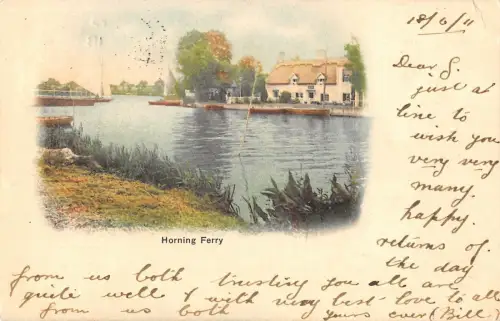 18/6/11
Dear S.
just a
line to
wish you
very very
many.
happy.
returns of.
the day
Horning Ferry
from us both trusting you all are
quite well & with very best love to all
from us both yours ever (Bill)